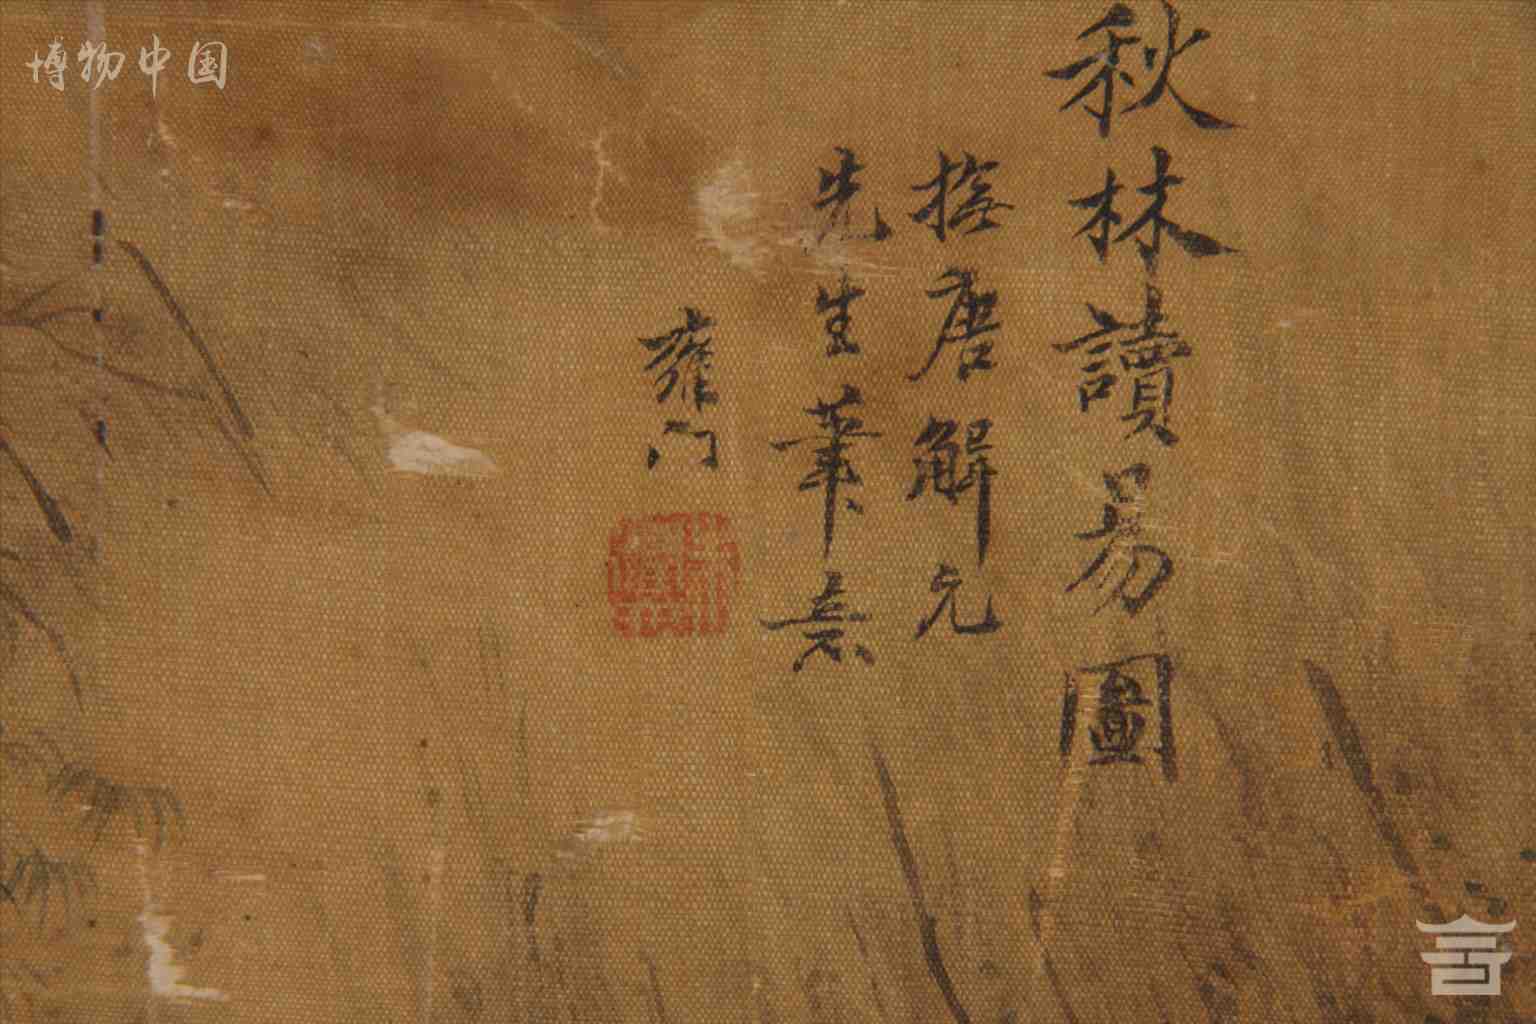 博物中国
秋林讀易圖
橅唐解元
先生筆意
雍門